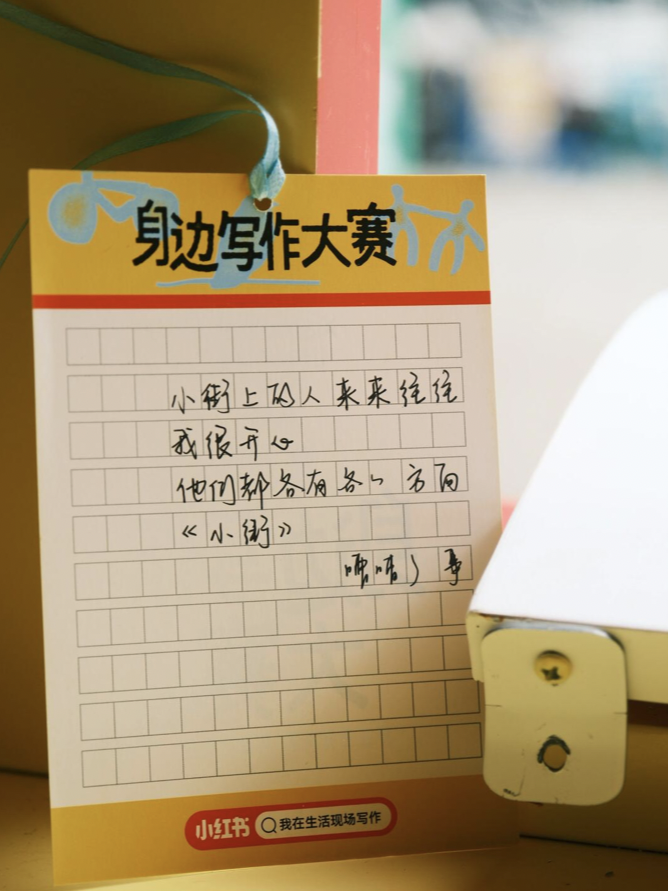 身边写作大赛
小街上的人来来往往
我很开心
他们都各有各的方向
《小街》
小红书
我在生活现场写作